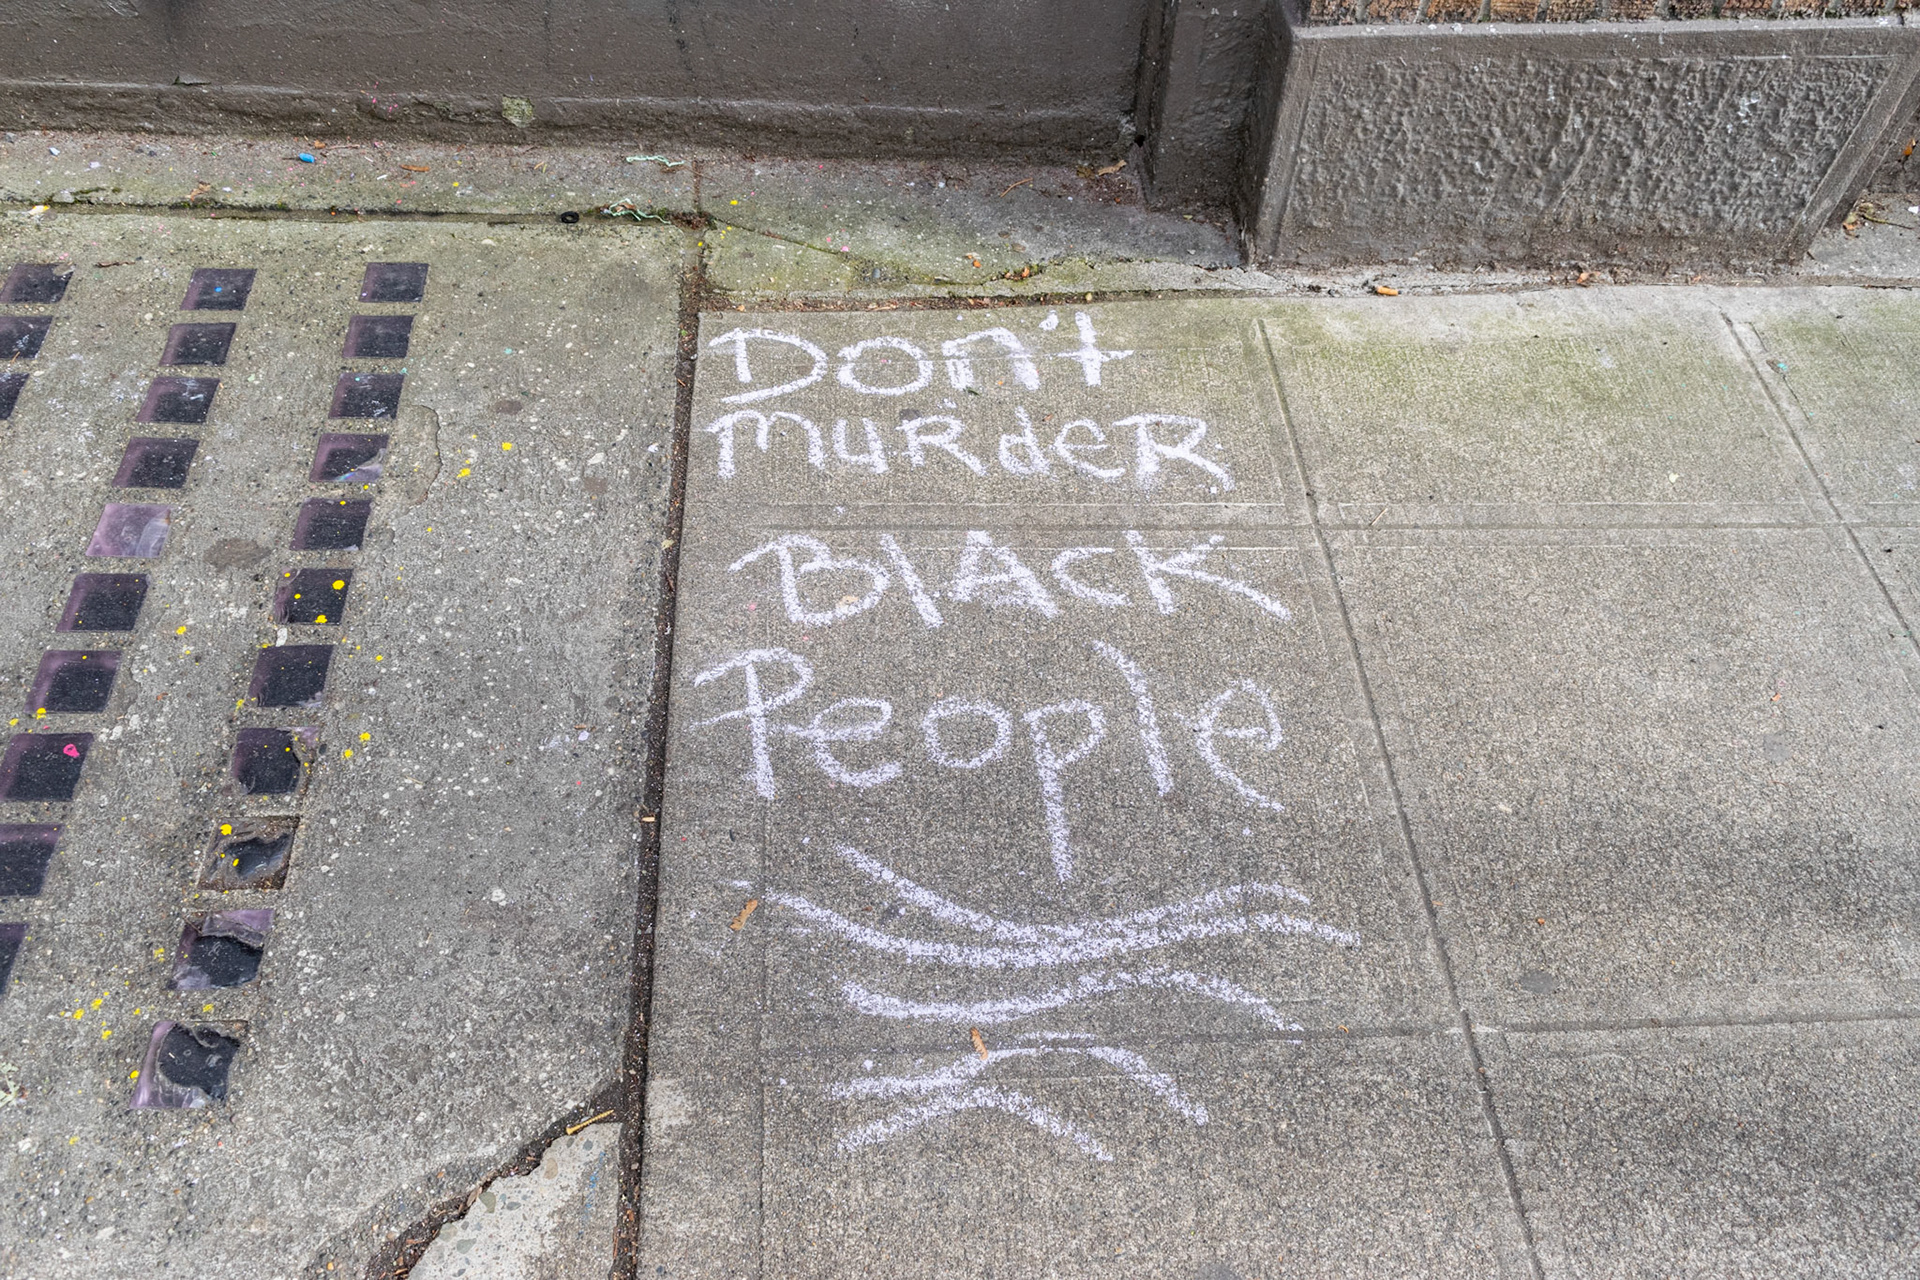 Don't
MuRdeR
BlAck
People